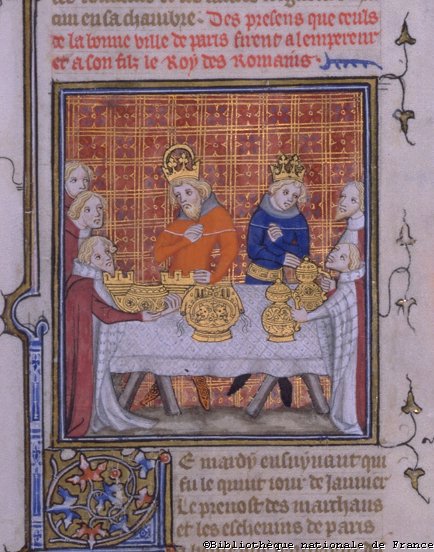 qui en sa chambre. Des presens que ceuls
de la bonne ville de paris firent a lempereur
et a son filz le Roy des Romains.
De mardy ensuyuant qui
fu le quint iour de Januier
Le preuost des marchans
et les eschevins de paris
©Bibliothèque nationale de France